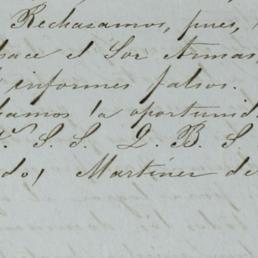 Rechazamos, pues,
hace el Sor Armas,
informes falsos.
amos la oportunid
S. S. Q. B. S
do, Martínez de